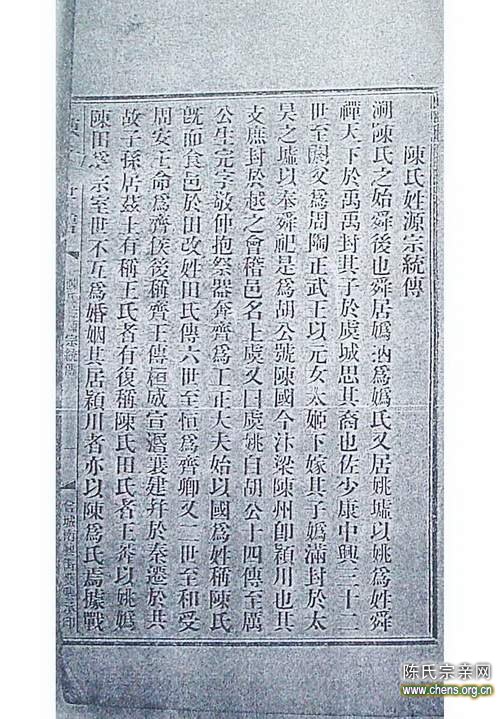 陳氏姓源宗統傳
溯陳氏之始舜後也舜居嬀汭爲嬀氏又居姚墟以姚爲姓舜
禪天下於禹禹封其子於虞城思其裔也佐少康中興三十二
世至閼父爲周陶正武王以元女太姬下嫁其子嬀滿封於太
昊之墟以奉舜祀是爲胡公號陳國今汴梁陳州卽潁川也其
支庶封於越之會稽邑名上虞又曰虞姚自胡公十四傳至厲
公生完字敬仲抱祭器奔齊爲工正大夫始以國爲姓稱陳氏
旣而食邑於田改姓田氏傳六世至恒爲齊卿又二世至和受
周安王命爲齊侯後稱齊王傳桓威宣湣襄建幷於秦遷於共
故子孫居茲土有稱王氏者有復稱陳氏田氏者王莽以姚嬀
陳田爲宗室世不互爲婚姻其居潁川者亦以陳爲氏焉據戰
宗統傳
陈氏宗亲网
www.chens.org.cn